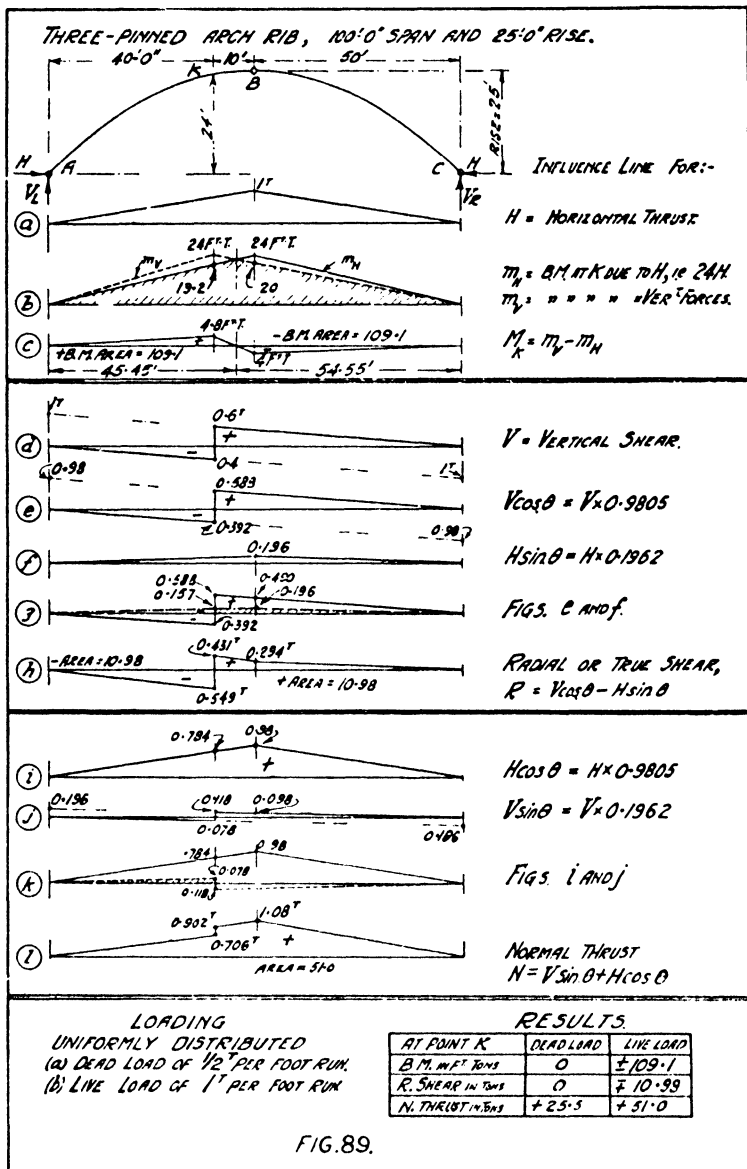 THREE-PINNED ARCH RIB, 100'0" SPAN AND 25'0" RISE.
40'0" 10' 50'
K B
24'
RISE=25'
H A C H
V_L V_R
INFLUENCE LINE FOR:-
1T
(a) H = HORIZONTAL THRUST.
24FT T. 24FT T.
m_V m_H
19·2 20
(b) m_H = B.M. AT K DUE TO H, IE 24H.
m_V = " " " " " VERT FORCES.
4·8FT T.
-B.M. AREA = 109·1
(c) + - M_K = m_V - m_H
+B.M. AREA = 109·1 4FT T
45·45' 54·55'
1T
0·6T
(d) + - V = VERTICAL SHEAR.
0·4
0·98 1T
0·583
(e) + - Vcosθ = V×0·9805
0·392 0·98
0·196
(f) Hsinθ = H×0·1962
0·588 0·490
0·157 0·196
(g) + - FIGS. e AND f.
0·392
0·431T 0·294T
-AREA = 10·98 - + RADIAL OR TRUE SHEAR,
(h) +AREA = 10·98 R = Vcosθ - Hsinθ
0·549T
0·784 0·98
+
(i) Hcosθ = H×0·9805
0·196 0·118 0·098
(j) Vsinθ = V×0·1962
0·078 0·196
·784 0·98
0·078
(k) FIGS. i AND j
0·118
0·902T 1·08T
0·706T +
(l) NORMAL THRUST
AREA = 51·0 N = Vsinθ + Hcosθ
LOADING
UNIFORMLY DISTRIBUTED
(a) DEAD LOAD OF 1/2T PER FOOT RUN.
(b) LIVE LOAD OF 1T PER FOOT RUN
RESULTS.
AT POINT K DEAD LOAD LIVE LOAD
B.M. IN FT TONS 0 ±109·1
R. SHEAR IN TONS 0 ∓10·99
N. THRUST IN TONS +25·5 +51·0
FIG.89.